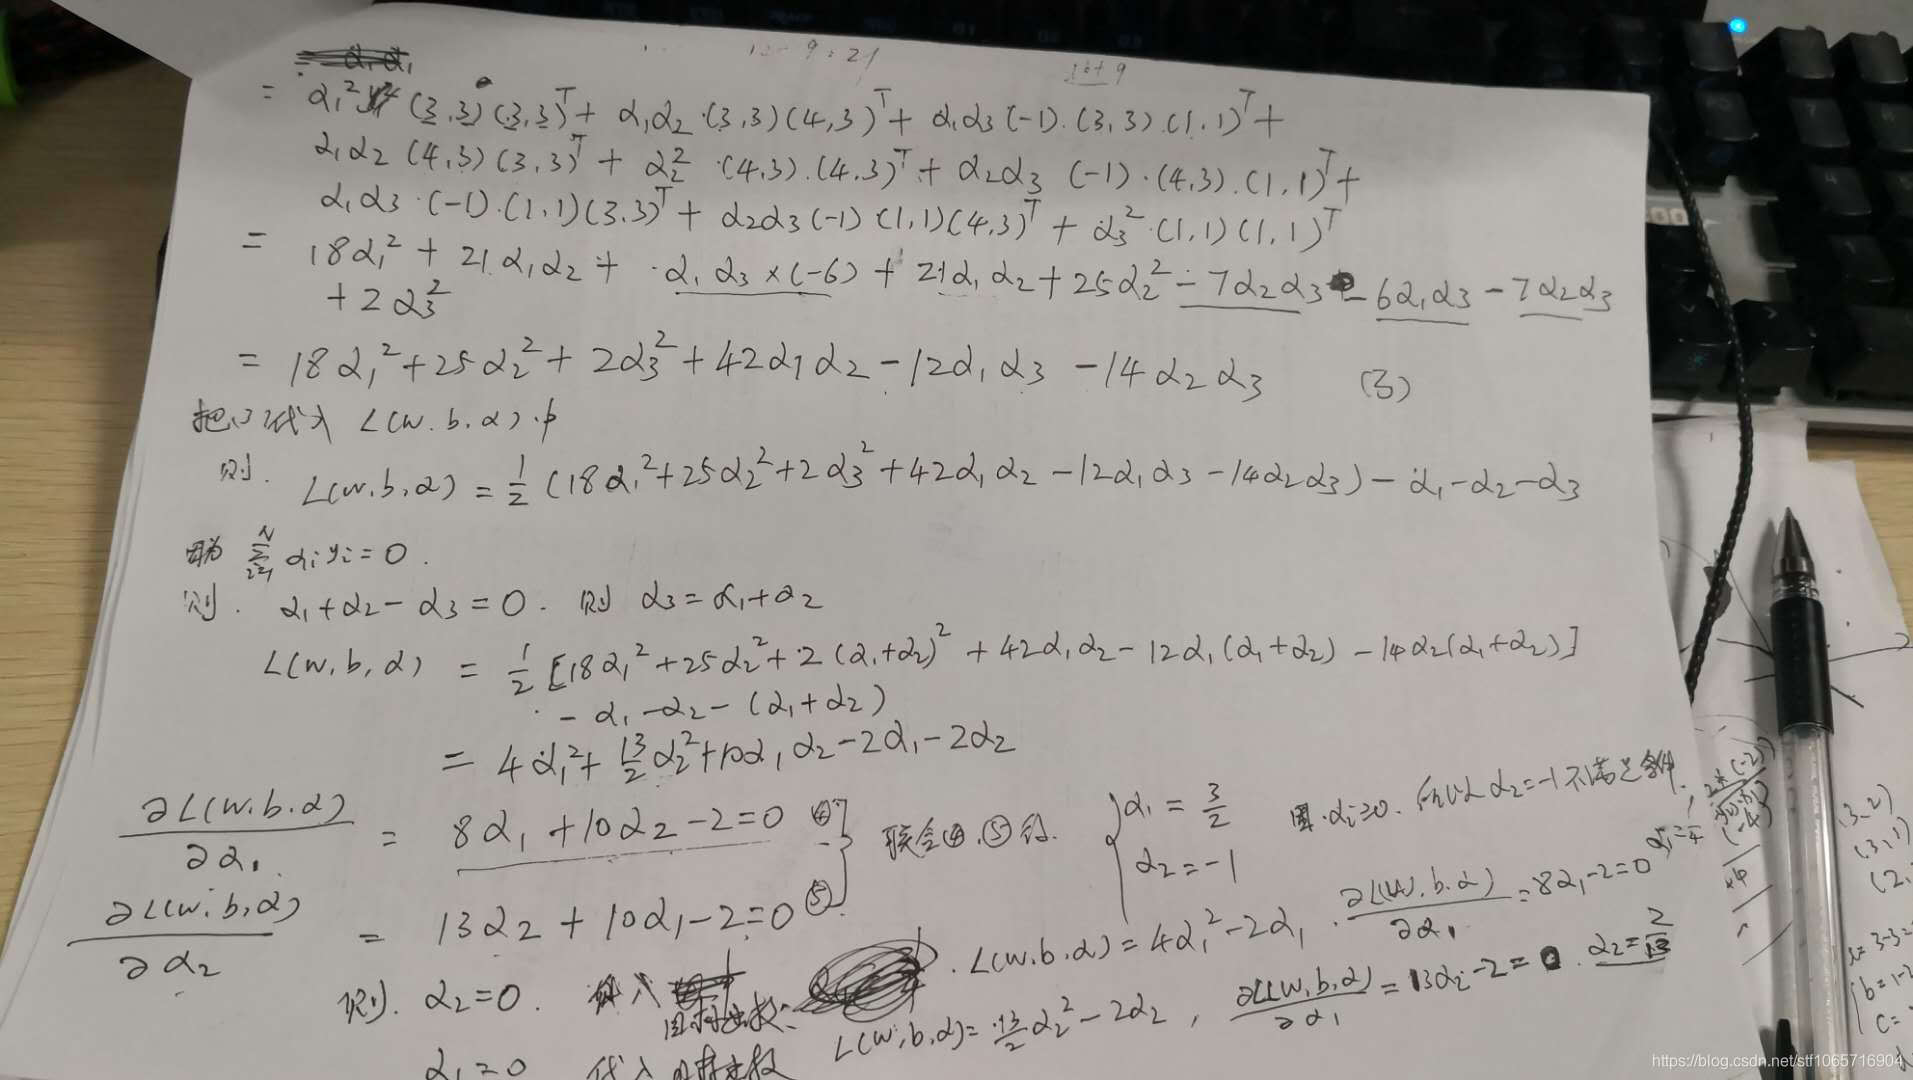 = α₁² (3,3)(3,3)ᵀ + α₁α₂·(3,3)(4,3)ᵀ + α₁α₃(-1)·(3,3)·(1,1)ᵀ +
α₁α₂ (4,3)(3,3)ᵀ + α₂² ·(4,3)·(4,3)ᵀ + α₂α₃ (-1)·(4,3)·(1,1)ᵀ +
α₁α₃·(-1)·(1,1)(3,3)ᵀ + α₂α₃(-1)·(1,1)(4,3)ᵀ + α₃²·(1,1)(1,1)ᵀ
= 18α₁² + 21α₁α₂ + α₁α₃×(-6) + 21α₁α₂ + 25α₂² - 7α₂α₃ - 6α₁α₃ - 7α₂α₃
+ 2α₃²
= 18α₁² + 25α₂² + 2α₃² + 42α₁α₂ - 12α₁α₃ - 14α₂α₃ (3)
把 代入 L(w.b.α)中
则. L(w.b.α) = 1/2 (18α₁² + 25α₂² + 2α₃² + 42α₁α₂ - 12α₁α₃ - 14α₂α₃) - α₁ - α₂ - α₃
因为 Σ αᵢyᵢ = 0.
则. α₁ + α₂ - α₃ = 0. 则 α₃ = α₁ + α₂
L(w,b,α) = 1/2 [18α₁² + 25α₂² + 2(α₁+α₂)² + 42α₁α₂ - 12α₁(α₁+α₂) - 14α₂(α₁+α₂)]
- α₁ - α₂ - (α₁+α₂)
= 4α₁² + 13/2 α₂² + 10α₁α₂ - 2α₁ - 2α₂
∂L(w.b.α)/∂α₁ = 8α₁ + 10α₂ - 2 = 0 ④
∂L(w.b,α)/∂α₂ = 13α₂ + 10α₁ - 2 = 0 ⑤
联合④.⑤得. { α₁ = 3/2
α₂ = -1
因.αᵢ≥0. 所以α₂=-1不满足条件.
则. α₂=0. 代入
L(w.b.α) = 4α₁² - 2α₁. ∂L(w.b.α)/∂α₁ = 8α₁ - 2 = 0 α₁ = 1/4
α₁=0 代入目标函数
L(w,b,α) = 13/2 α₂² - 2α₂, ∂L(w,b,α)/∂α₁ = 13α₂ - 2 = 0. α₂ = 2/13
https://blog.csdn.net/stf1065716904